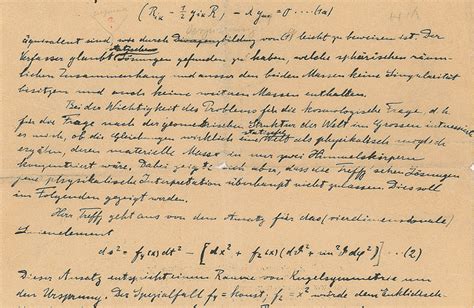 (R_ik − ½ g_ik R) − λ g_ik = 0 .... (1a)
äquivalent sind, wie durch von (1) leicht zu beweisen ist. Der
Verfasser glaubt statische Lösungen gefunden zu haben, welche sphärischen räum-
lichen Zusammenhang und ausser den beiden Massen keine Singularität
besitzen und auch keine weiteren Massen enthalten.
Bei der Wichtigkeit des Problems für die kosmologische Frage, d. h.
für die Frage nach der geometrischen Struktur der Welt im Grossen interessierte
es mich, ob die Gleichungen wirklich eine statische Welt als physikalisch möglich
ergäben, deren materielle Masse in nur zwei Himmelskörpern
konzentriert wäre. Dabei zeigte sich aber, dass die Trefftz'schen Lösungen
jene physikalische Interpretation überhaupt nicht zulassen. Dies soll
im Folgenden gezeigt werden.
Herr Trefftz geht aus von dem Ansatz für das (vierdimensionale)
Linienelement
ds² = f₄(x) dt² − [dx² + f₂(x)(dϑ² + sin²ϑ dφ²)] ... (2)
Dieser Ansatz entspricht einem Raume von Kugelsymmetrie um
den Ursprung. Der Spezialfall f₄ = konst, f₂ = x² würde dem Euklidisch-